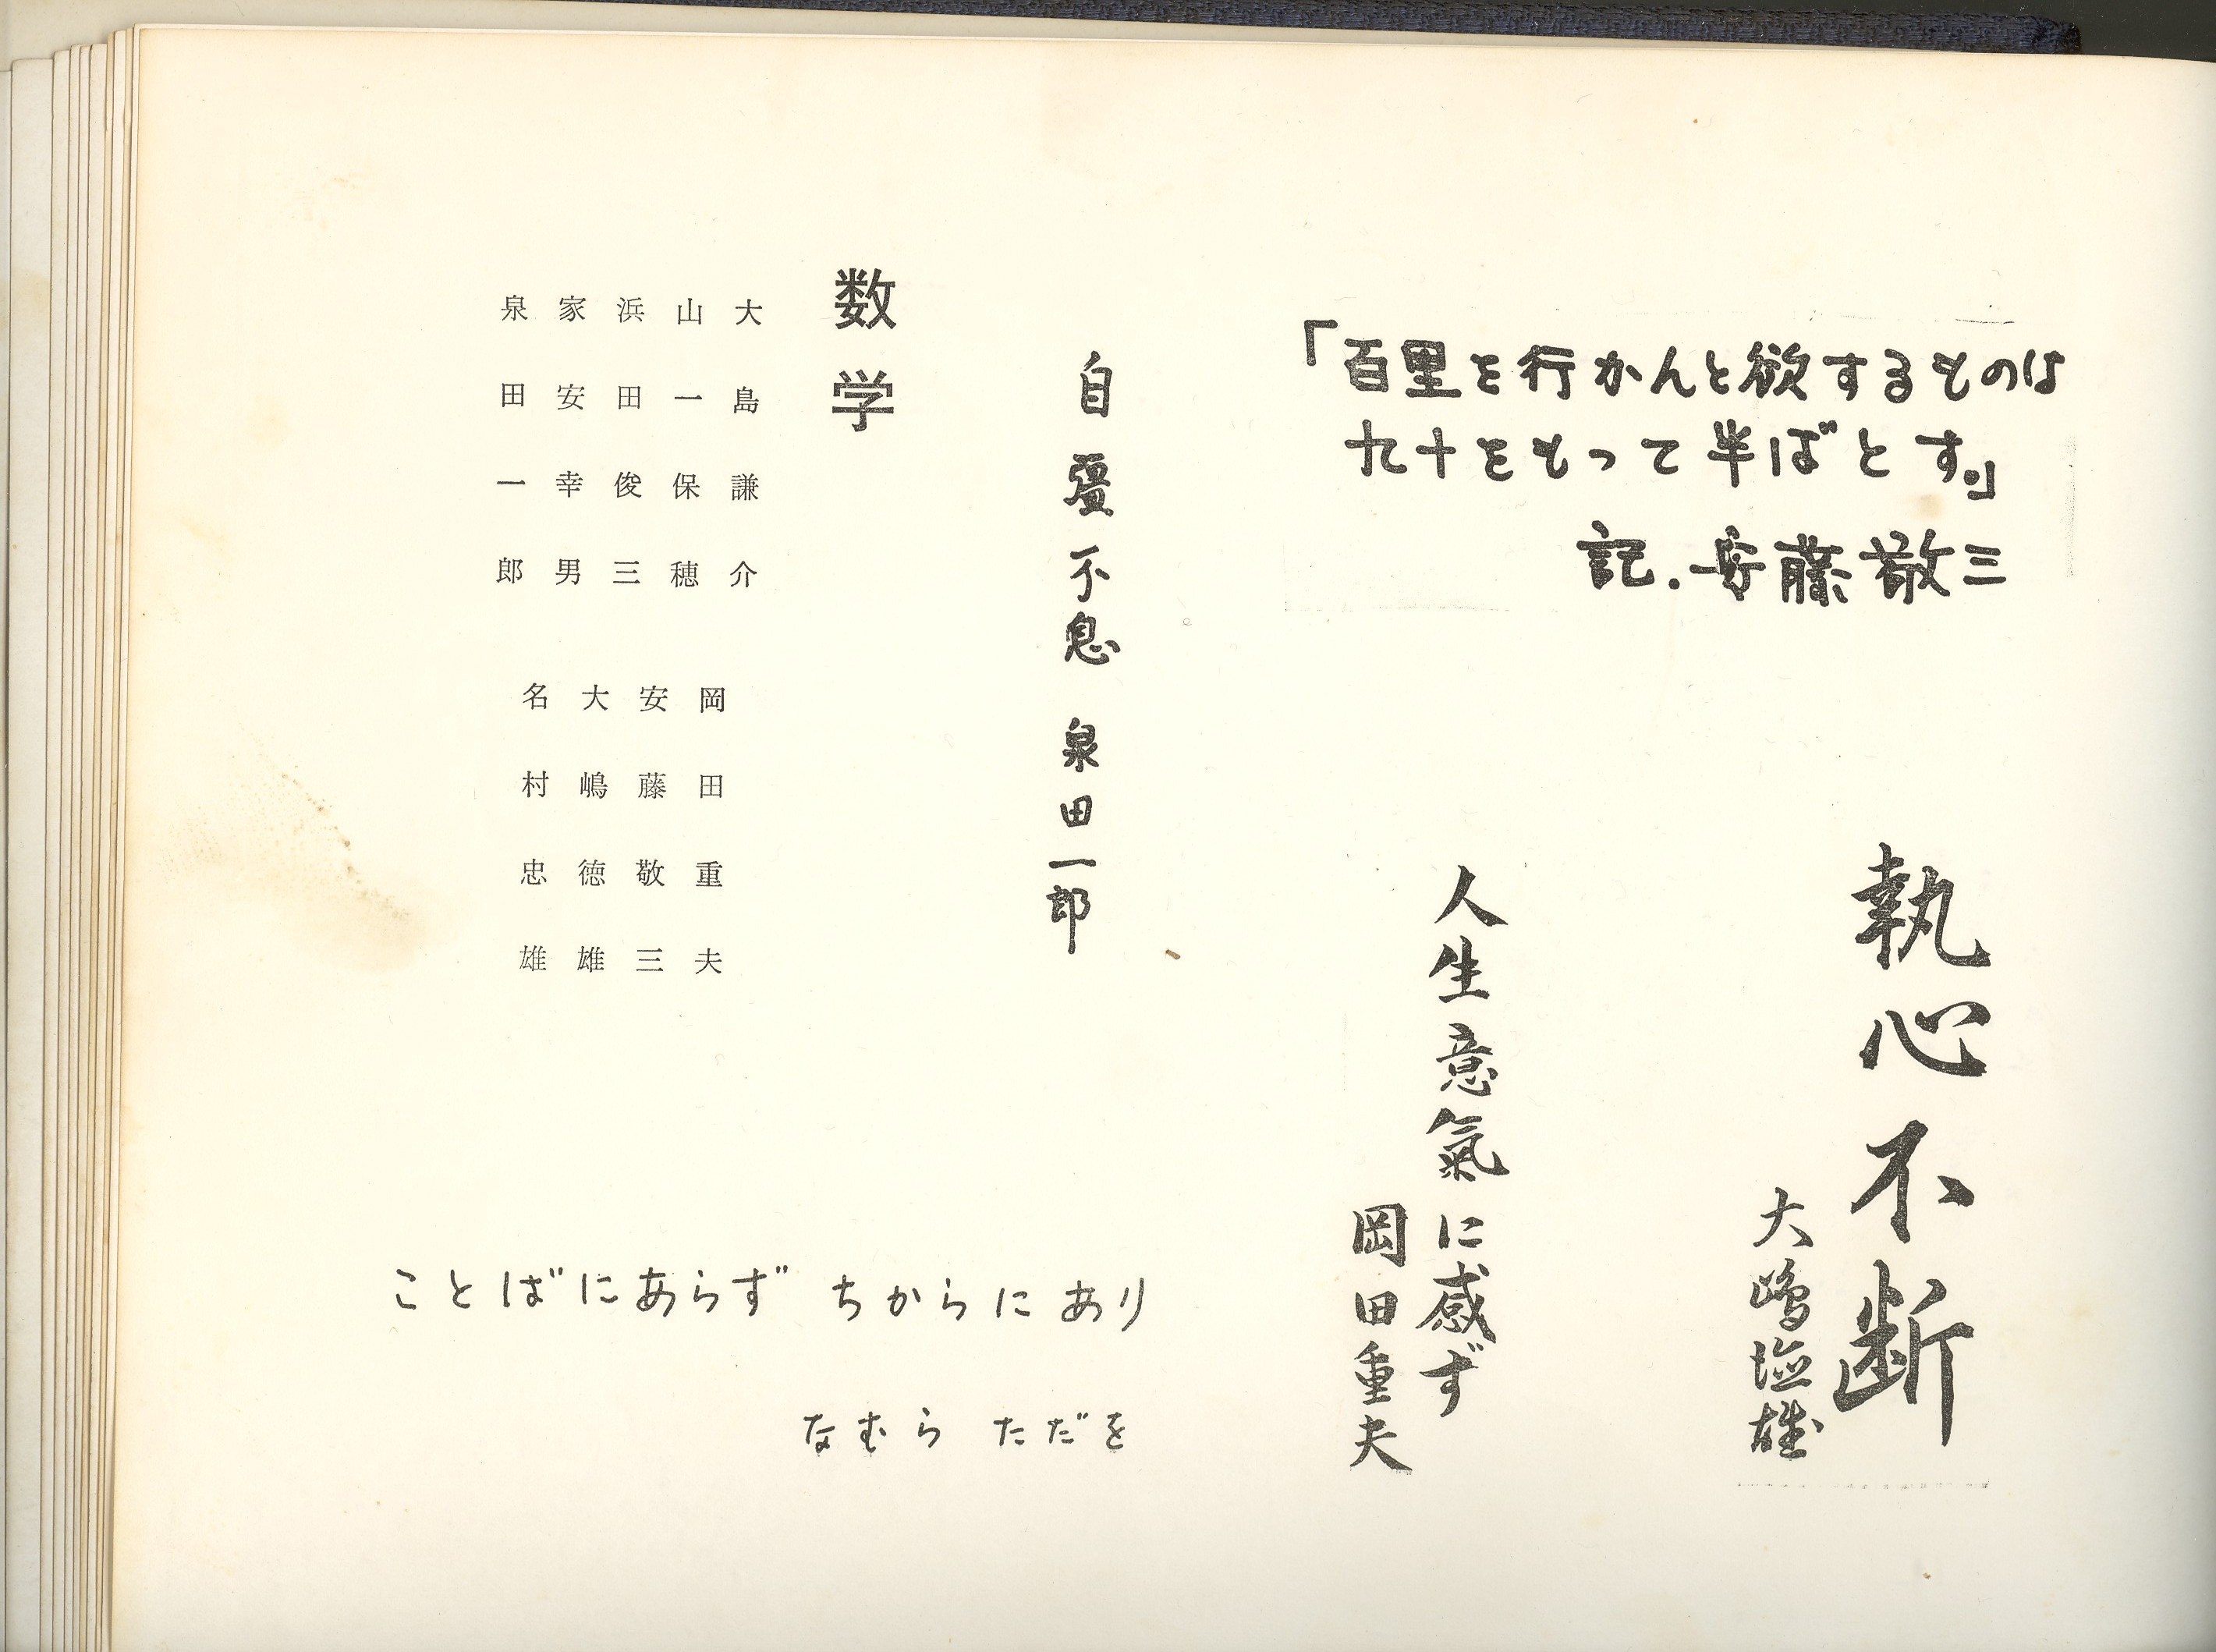 「百里を行かんと欲するものは
九十をもって半ばとす。」
記.安藤敬三
執心不断
大嶋徳雄
人生意氣に感ず
岡田重夫
自彊不息 泉田一郎
数学
大島謙介
山一保穂
浜田俊三
家安幸男
泉田一郎
岡田重夫
安藤敬三
大嶋徳雄
名村忠雄
ことばにあらず ちからにあり
なむら ただを